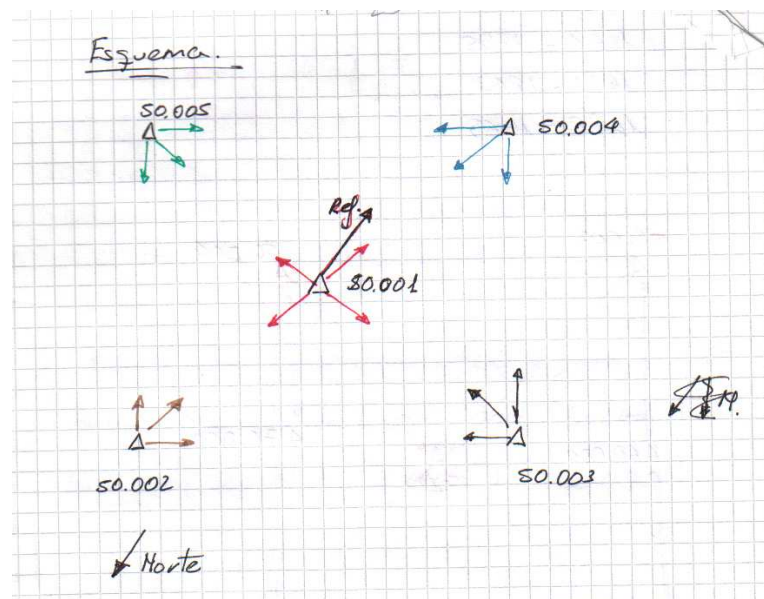 Esquema.
50.005
50.004
Ref.
50.001
50.002
50.003
N.
Norte